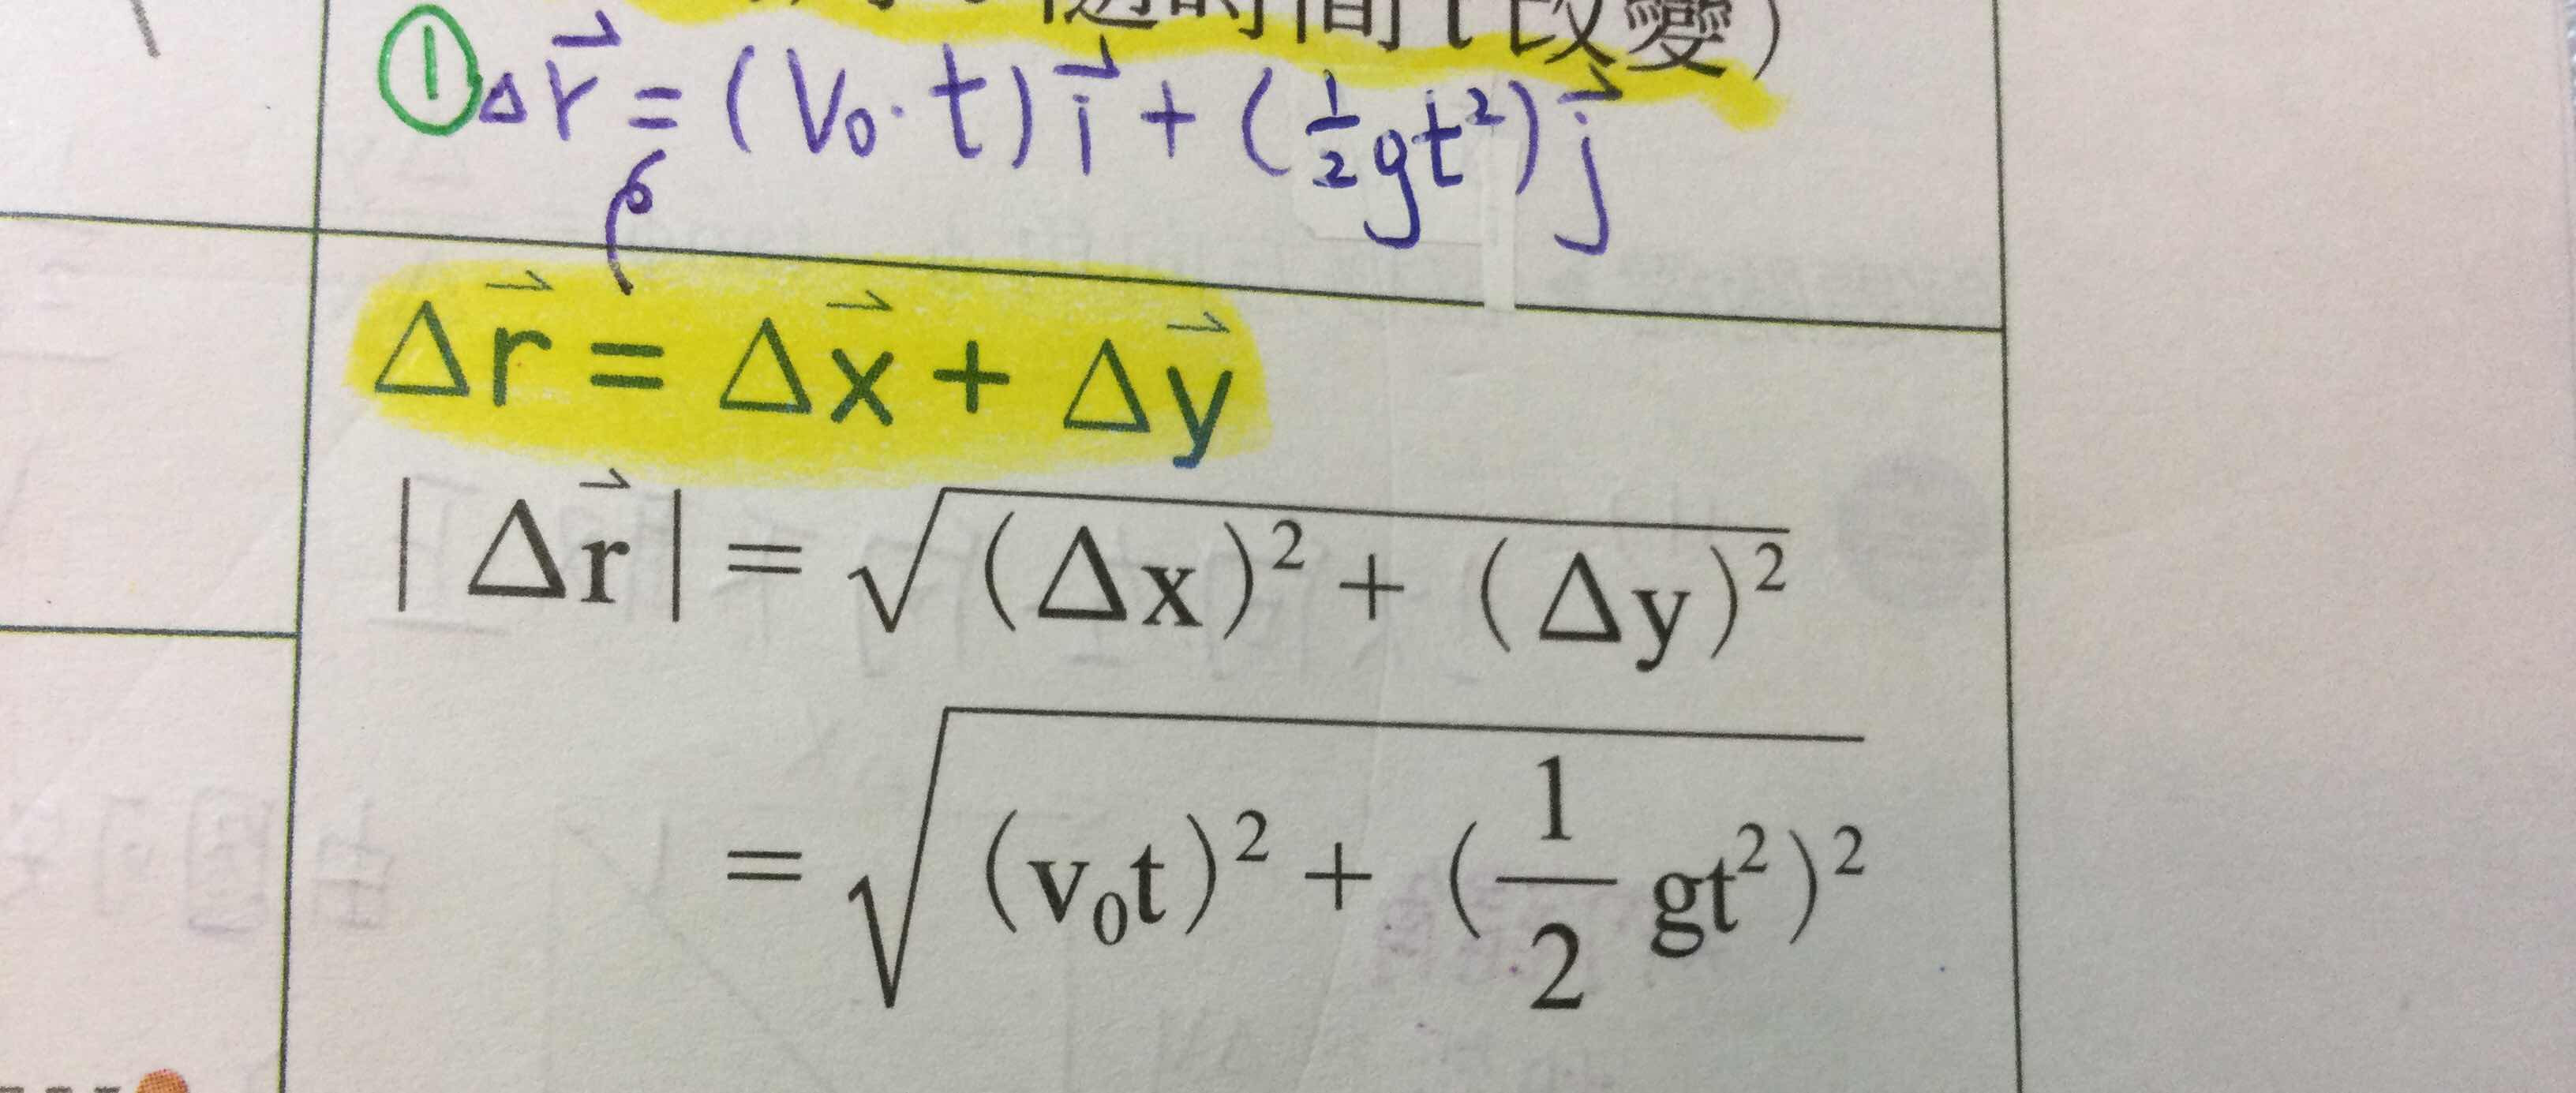 隨時間t改變)
① Δr⃗ = (V₀·t)i⃗ + (½gt²)j⃗
Δr⃗ = Δx⃗ + Δy⃗
|Δr⃗| = √((Δx)² + (Δy)²)
= √((v₀t)² + (½gt²)²)